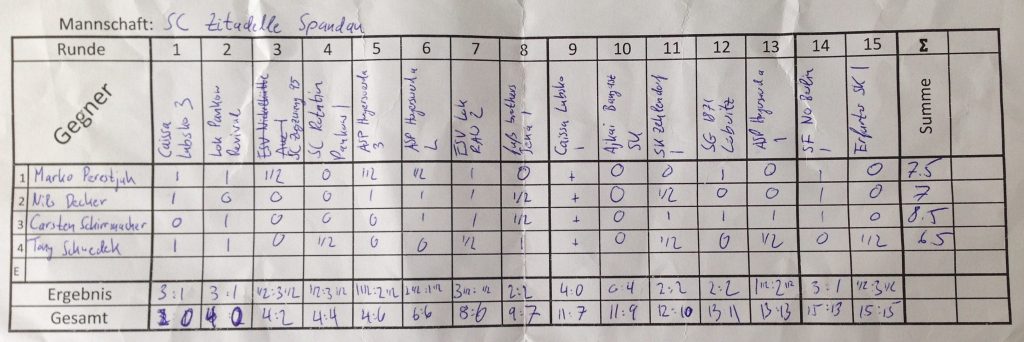 Mannschaft: SC Zitadelle Spandau
Runde 1 2 3 4 5 6 7 8 9 10 11 12 13 14 15 Σ
Gegner
Caissa Lübsko 3
Lok Pankow Revival
SC Zugzwang 95
SC Rotation Pankow 1
ASP Hoyerswerda 3
ASP Hoyerswerda 2
ESV Lok RAW 2
Jena 1
Caissa Lübsko 1
SK Zehlendorf 1
SG 1871 Löberitz
ASP Hoyerswerda 1
SF No Berlin 1
Erfurter SK 1
Summe
1 Marko Perestjuk 1 1 1/2 0 1/2 1/2 1 0 + 0 0 1 0 1 0 7.5
2 Nils Decker 1 0 0 0 1 1 1 1/2 + 0 1/2 0 0 1 0 7
3 Carsten Schirrmacher 0 1 0 0 0 1 1 1/2 + 0 1 1 1 1 0 8.5
4 Tany 1 1 0 1/2 0 0 1/2 1 + 0 1/2 0 1/2 0 1/2 6.5
E
Ergebnis 3:1 3:1 1/2:3 1/2 1/2:3 1/2 1 1/2:2 1/2 2 1/2:1 1/2 3 1/2:1/2 2:2 4:0 0:4 2:2 2:2 1 1/2:2 1/2 3:1 1/2:3 1/2
Gesamt 2 0 4 0 4:2 4:4 4:6 6:6 8:6 9:7 11:7 11:9 12:10 13 11 13:13 15:13 15:15